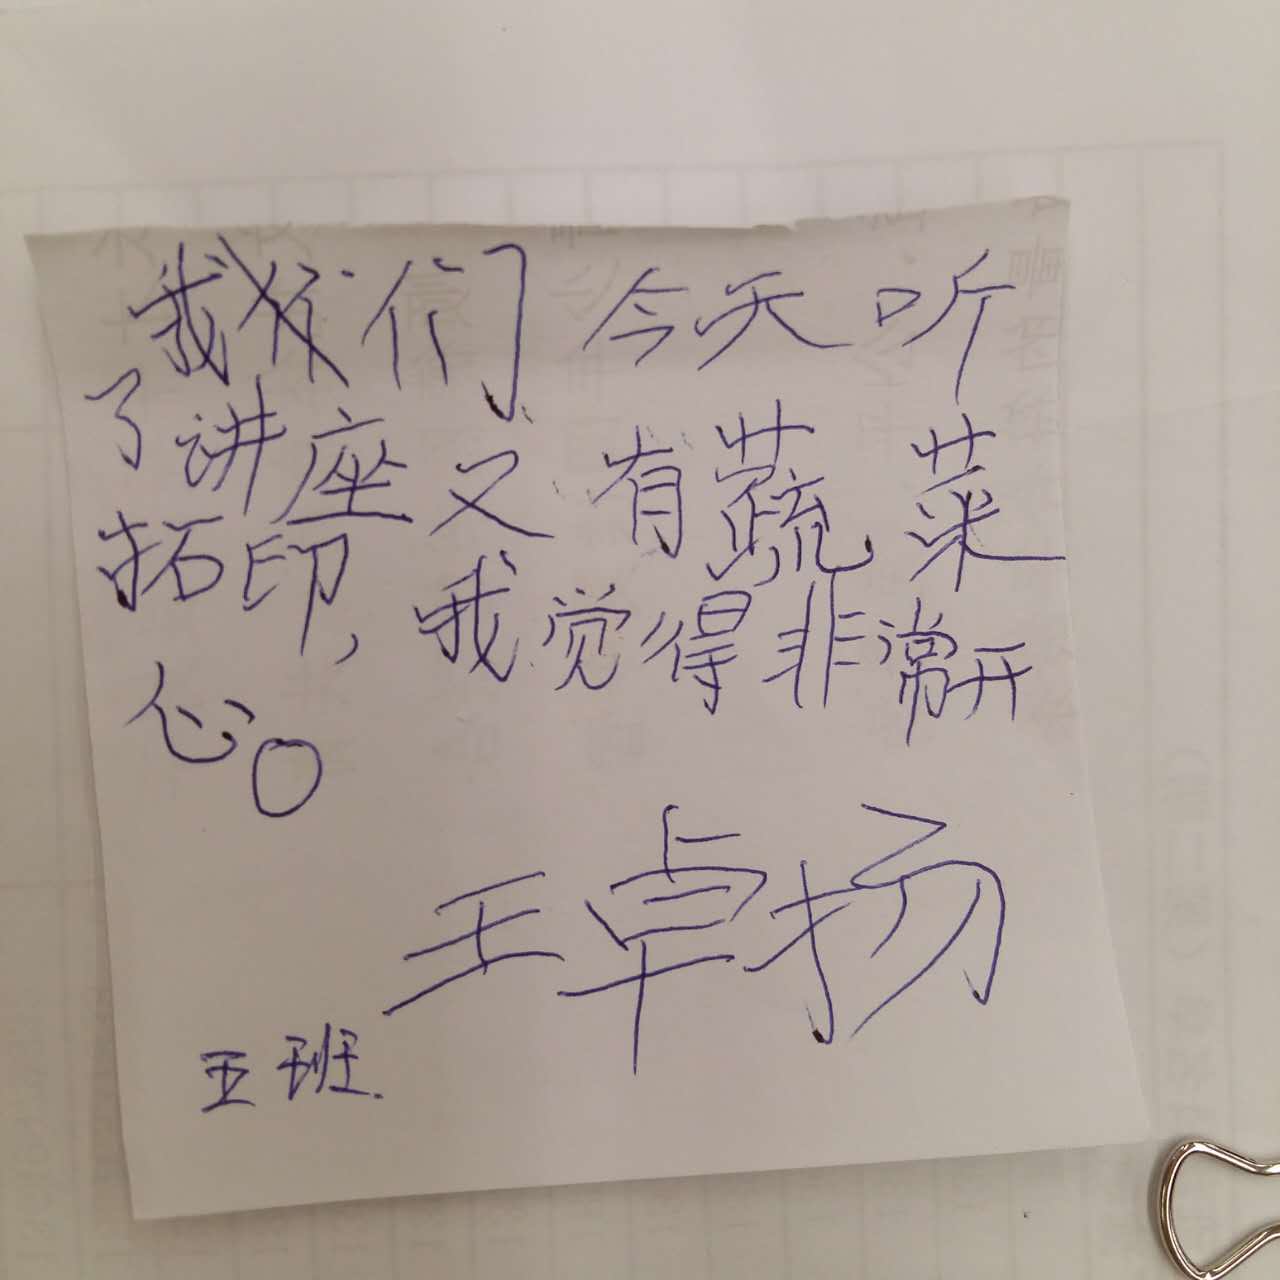 我们今天听
了讲座又有蔬菜
拓印,我觉得非常开
心。
王卓扬
五班.